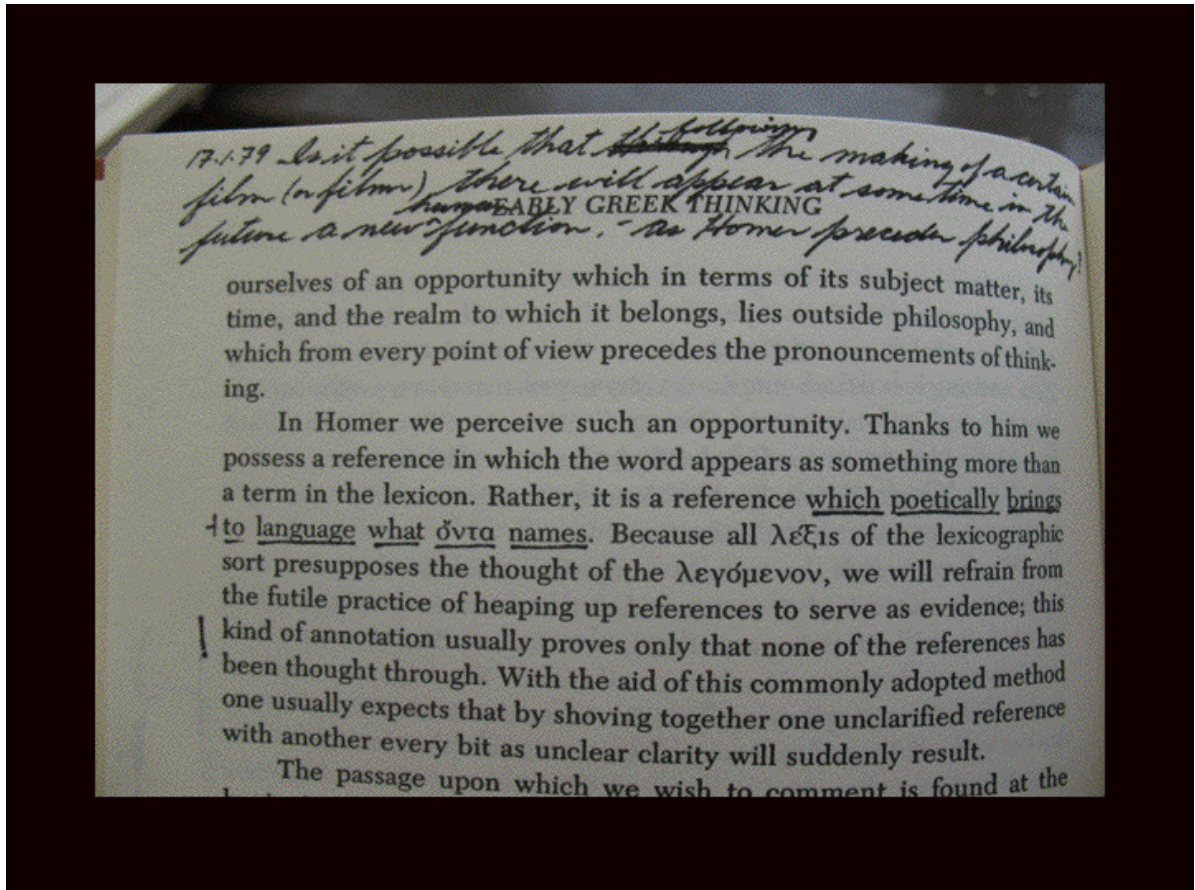 17.1.79 Is it possible that following the making of a certain
film (or films) there will appear at some time in the
human
EARLY GREEK THINKING
future a new function, - as Homer precedes philosophy?
ourselves of an opportunity which in terms of its subject matter, its
time, and the realm to which it belongs, lies outside philosophy, and
which from every point of view precedes the pronouncements of think-
ing.
In Homer we perceive such an opportunity. Thanks to him we
possess a reference in which the word appears as something more than
a term in the lexicon. Rather, it is a reference which poetically brings
to language what ὄντα names. Because all λέξις of the lexicographic
sort presupposes the thought of the λεγόμενον, we will refrain from
the futile practice of heaping up references to serve as evidence; this
kind of annotation usually proves only that none of the references has
been thought through. With the aid of this commonly adopted method
one usually expects that by shoving together one unclarified reference
with another every bit as unclear clarity will suddenly result.
The passage upon which we wish to comment is found at the